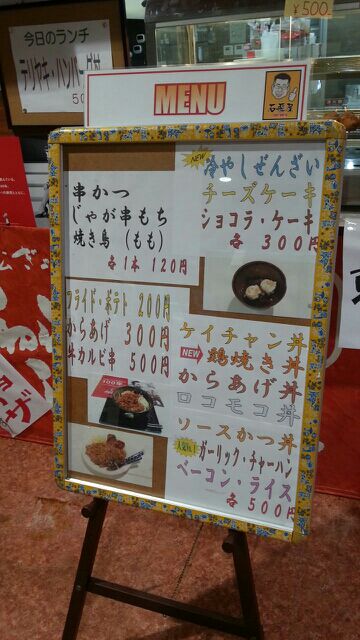 ¥500
今日のランチ
テリヤキ・ハンバーグ丼
MENU
石窯屋
串かつ
じゃが串もち
焼き鳥 (もも)
各1本 120円
NEW
冷やしぜんざい
チーズケーキ
ショコラ・ケーキ
各 300円
フライド・ポテト 200円
からあげ 300円
牛カルビ串 500円
ケイチャン丼
NEW 鶏焼き丼
からあげ丼
ロコモコ丼
ソースかつ丼
ガーリック・チャーハン
ベーコン・ライス
各500円